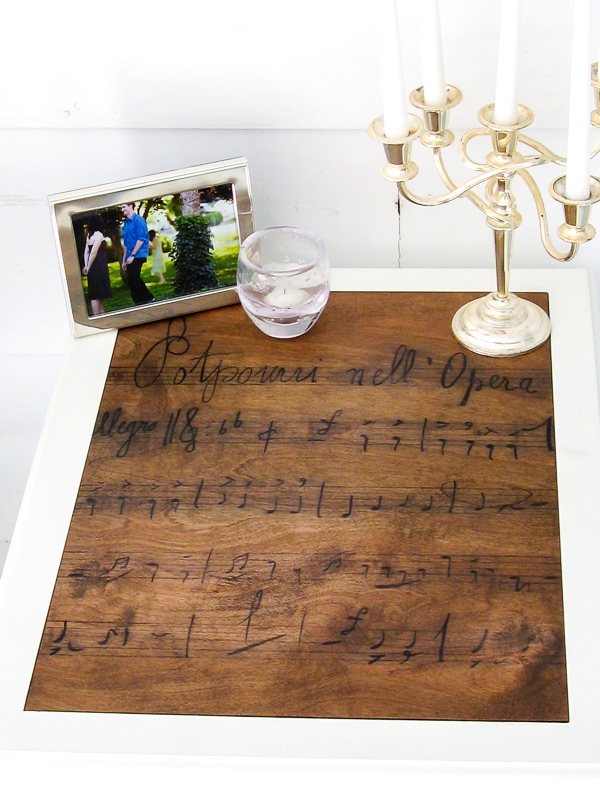 Potpourri nell' Opera
Allegro